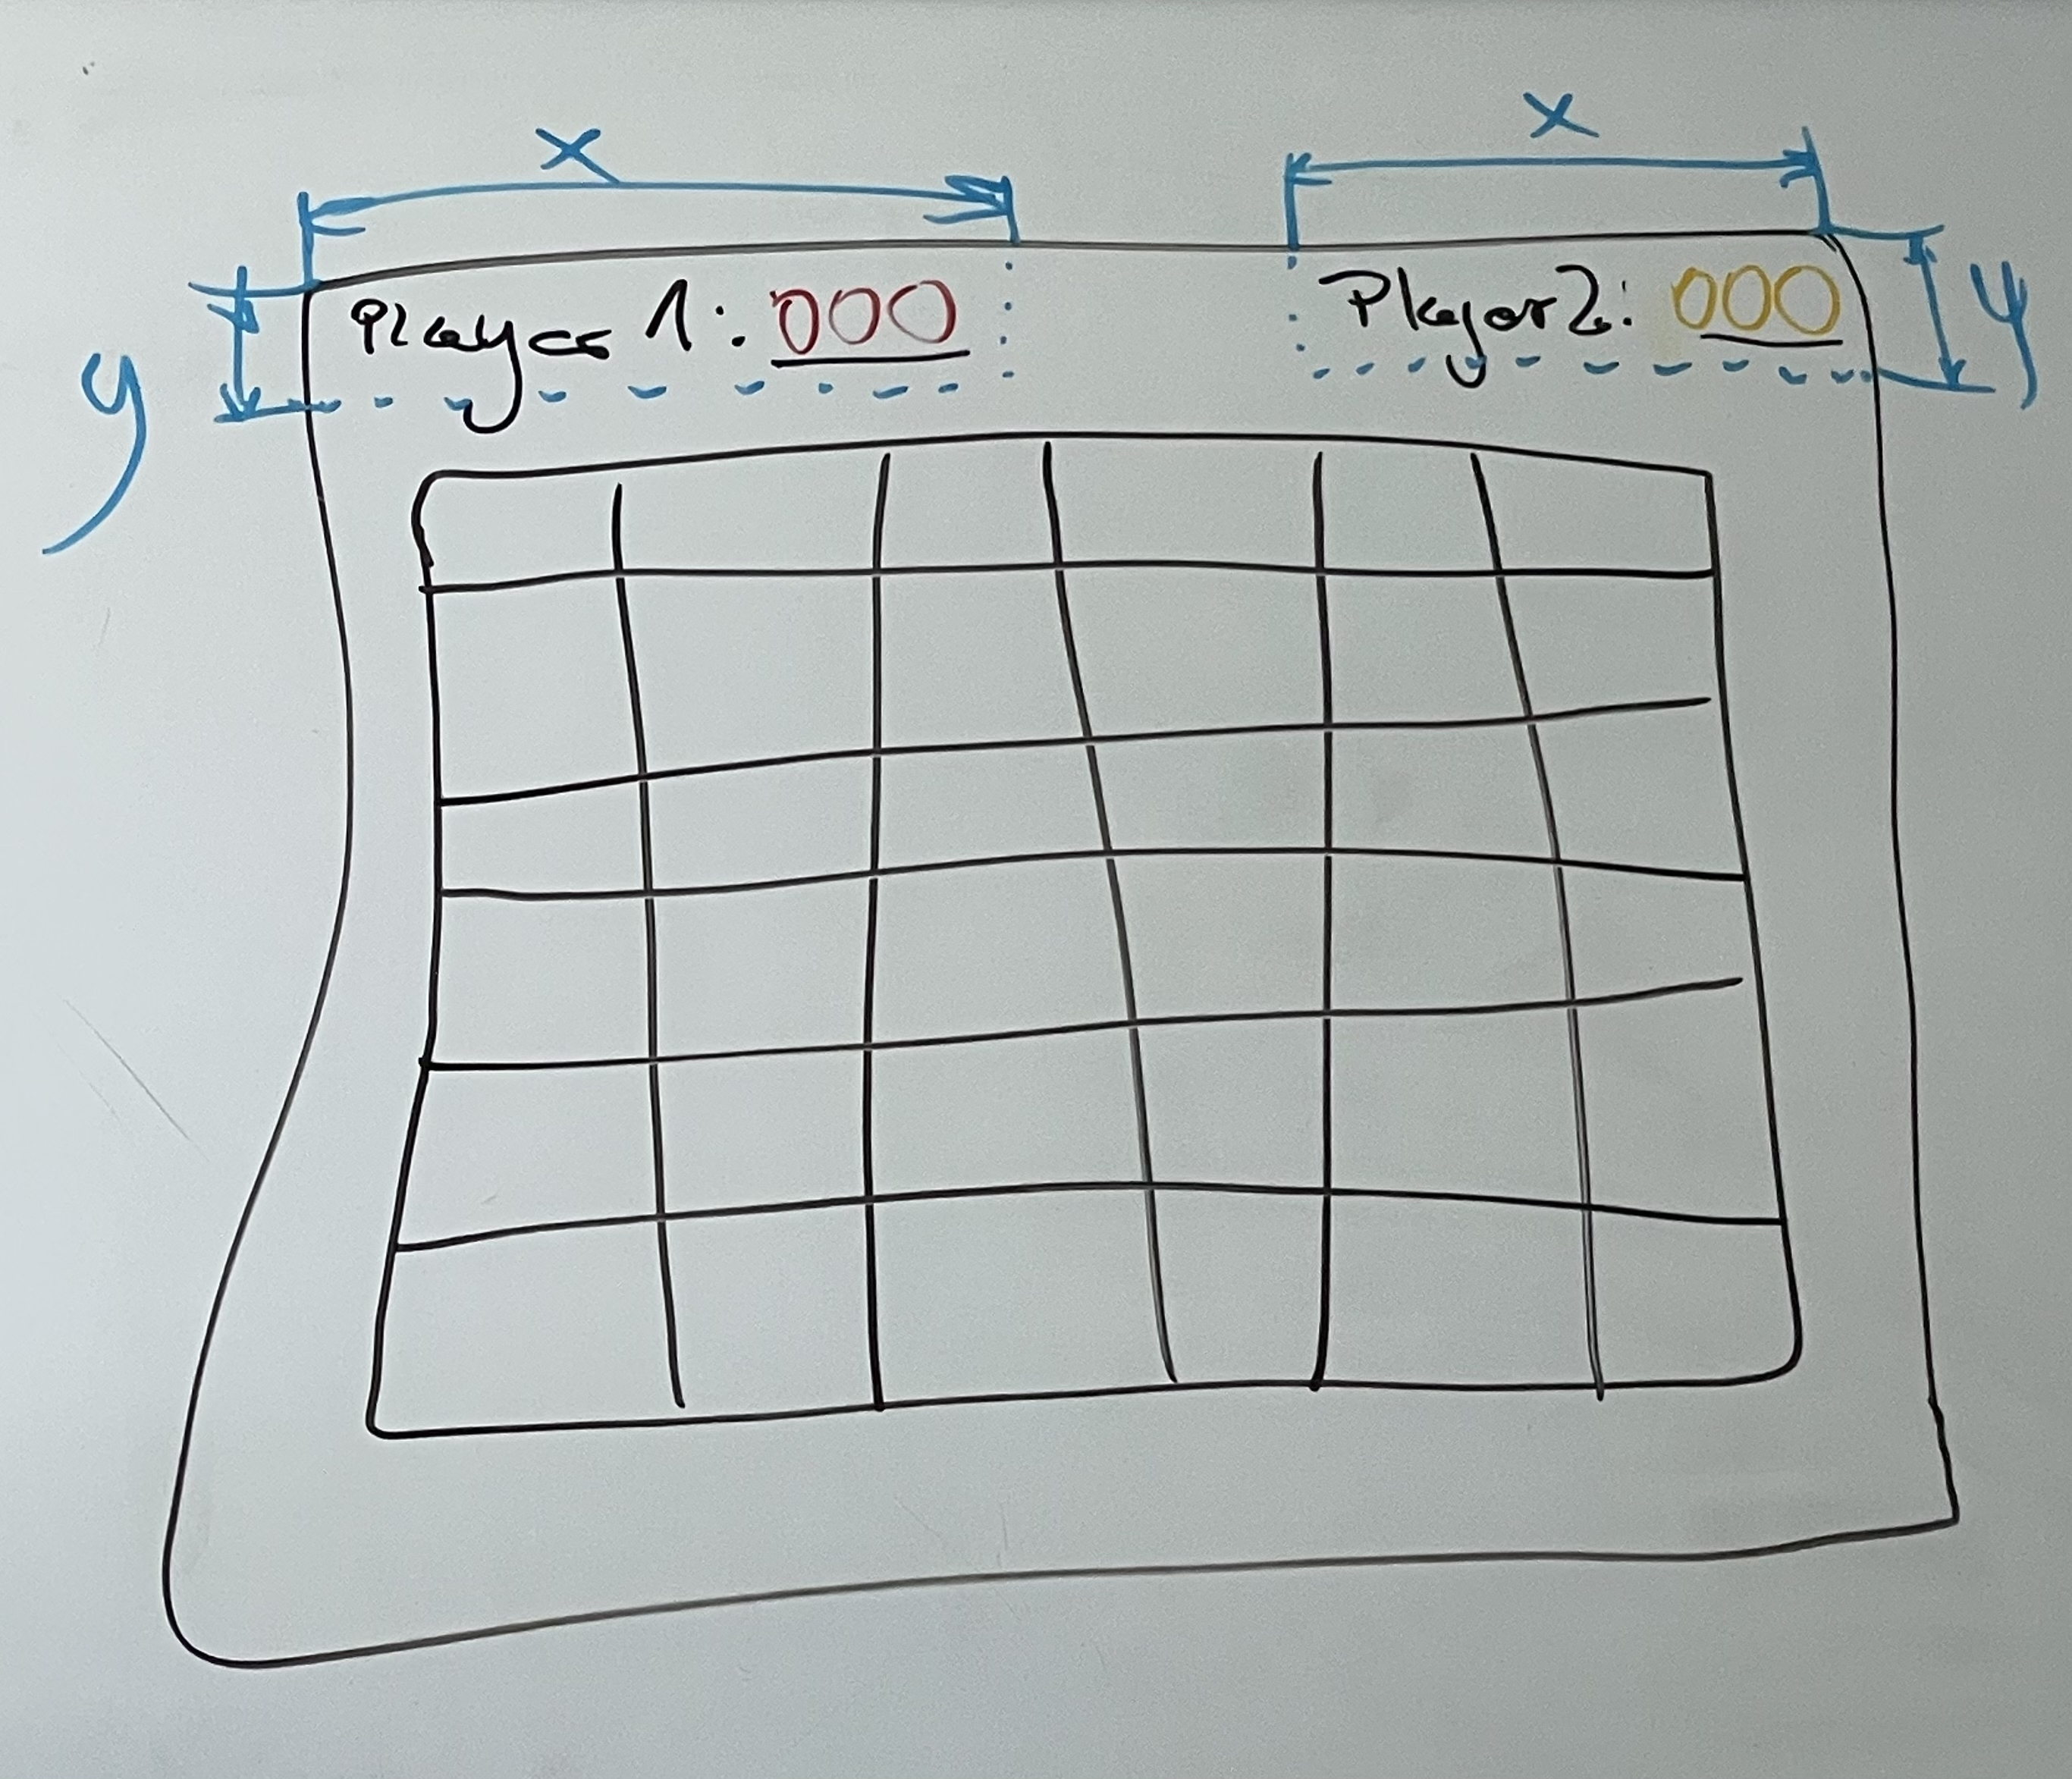 x x
y Player 1: 000 Player 2: 000 y